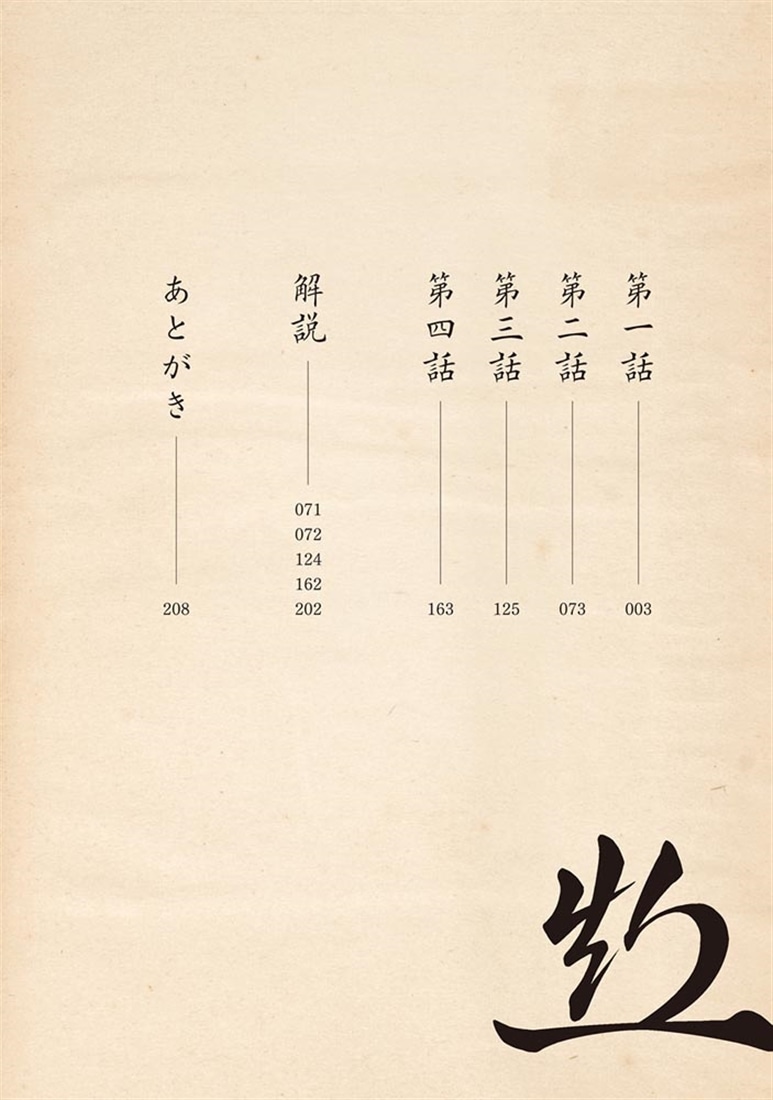 第一話 003
第二話 073
第三話 125
第四話 163
解説 071
072
124
162
202
あとがき 208